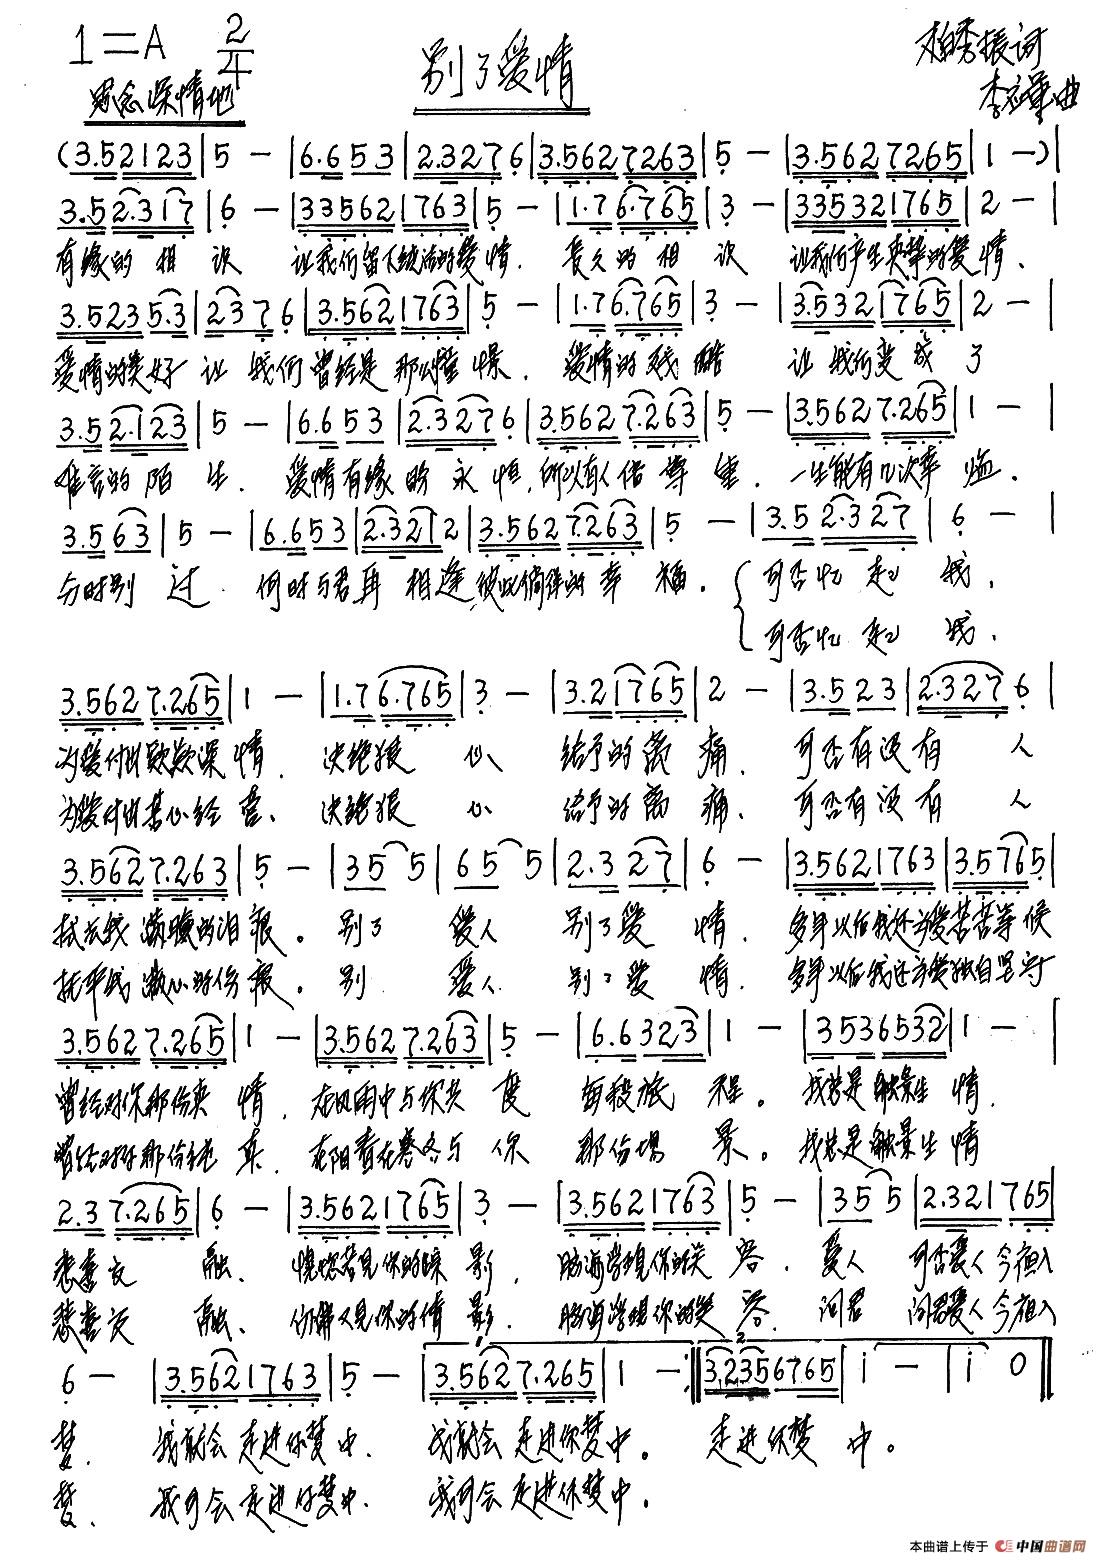 1=A 2/4
别了爱情
柏秀振词
思念深情地
李 曲
(3.52123|5 —|6.653|2.3276|3.5627263|5 —|3.5627265|1 —)|
3.52.317|6 —|335621763|5 —|1.76.765|3 —|335321765|2 —|
有缘的相识 让我们留下纯洁的爱情. 长久的相识 让我们产生真挚的爱情.
3.5235.3|2376|3.5621763|5 —|1.76.765|3 —|3.5321765|2 —|
爱情的美好让我们曾经是那么憧憬. 爱情的残酷 让我们变成了
3.52.123|5 —|6.653|2.3276|3.5627.263|5 —|3.5627.265|1 —|
难言的陌生. 爱情有缘的永恒,所以有人倍尊重. 一生能有几次幸临.
3.563|5 —|6.653|2.3212|3.5627.263|5 —|3.52.327|6 —|
与时别过. 何时与君再相逢,彼此倘徉的幸福. 可否忆起我.
可否忆起我.
3.5627.265|1 —|1.76.765|3 —|3.21765|2 —|3.523|2.3276|
为爱付出款款深情. 决绝狠心 给予的离痛. 可否有没有人
为爱付出苦心经营. 决绝狠心 给予的离痛. 可否有没有人
3.5627.263|5 —|355|655|2.327|6 —|3.5621763|3.5765|
拭去我满腮的泪痕。别了爱人 别了爱情. 多年以后我还为爱苦苦等候
抚平我满心的伤痕。别 爱人 别了爱情. 多年以后我还为爱独自坚守
3.5627.265|1 —|3.5627.263|5 —|6.6323|1 —|3536532|1 —|
曾经对你那份真情. 在风雨中与你共度每段旅程。我总是触景生情.
曾经对你那份纯真. 在阳春在寒冬与你那份场景。我总是触景生情
2.37.265|6 —|3.5621765|3 —|3.5621763|5 —|355|2.321765|
悲喜交融. 恍惚若见你的踪影. 脑海浮现你的笑容. 爱人 可否爱人今夜入
悲喜交融. 仿佛又见你的倩影. 脑海浮现你的笑容. 问君 问君爱人今夜入
6 —|3.5621763|5 —|3.5627.265|1 —:‖3.2356765|i —|i 0‖
梦. 我就会走进你梦中. 我就会走进你梦中。 走进你梦中。
梦. 我可会走进你梦中. 我可会走进你梦中。
本曲谱上传于 中国曲谱网